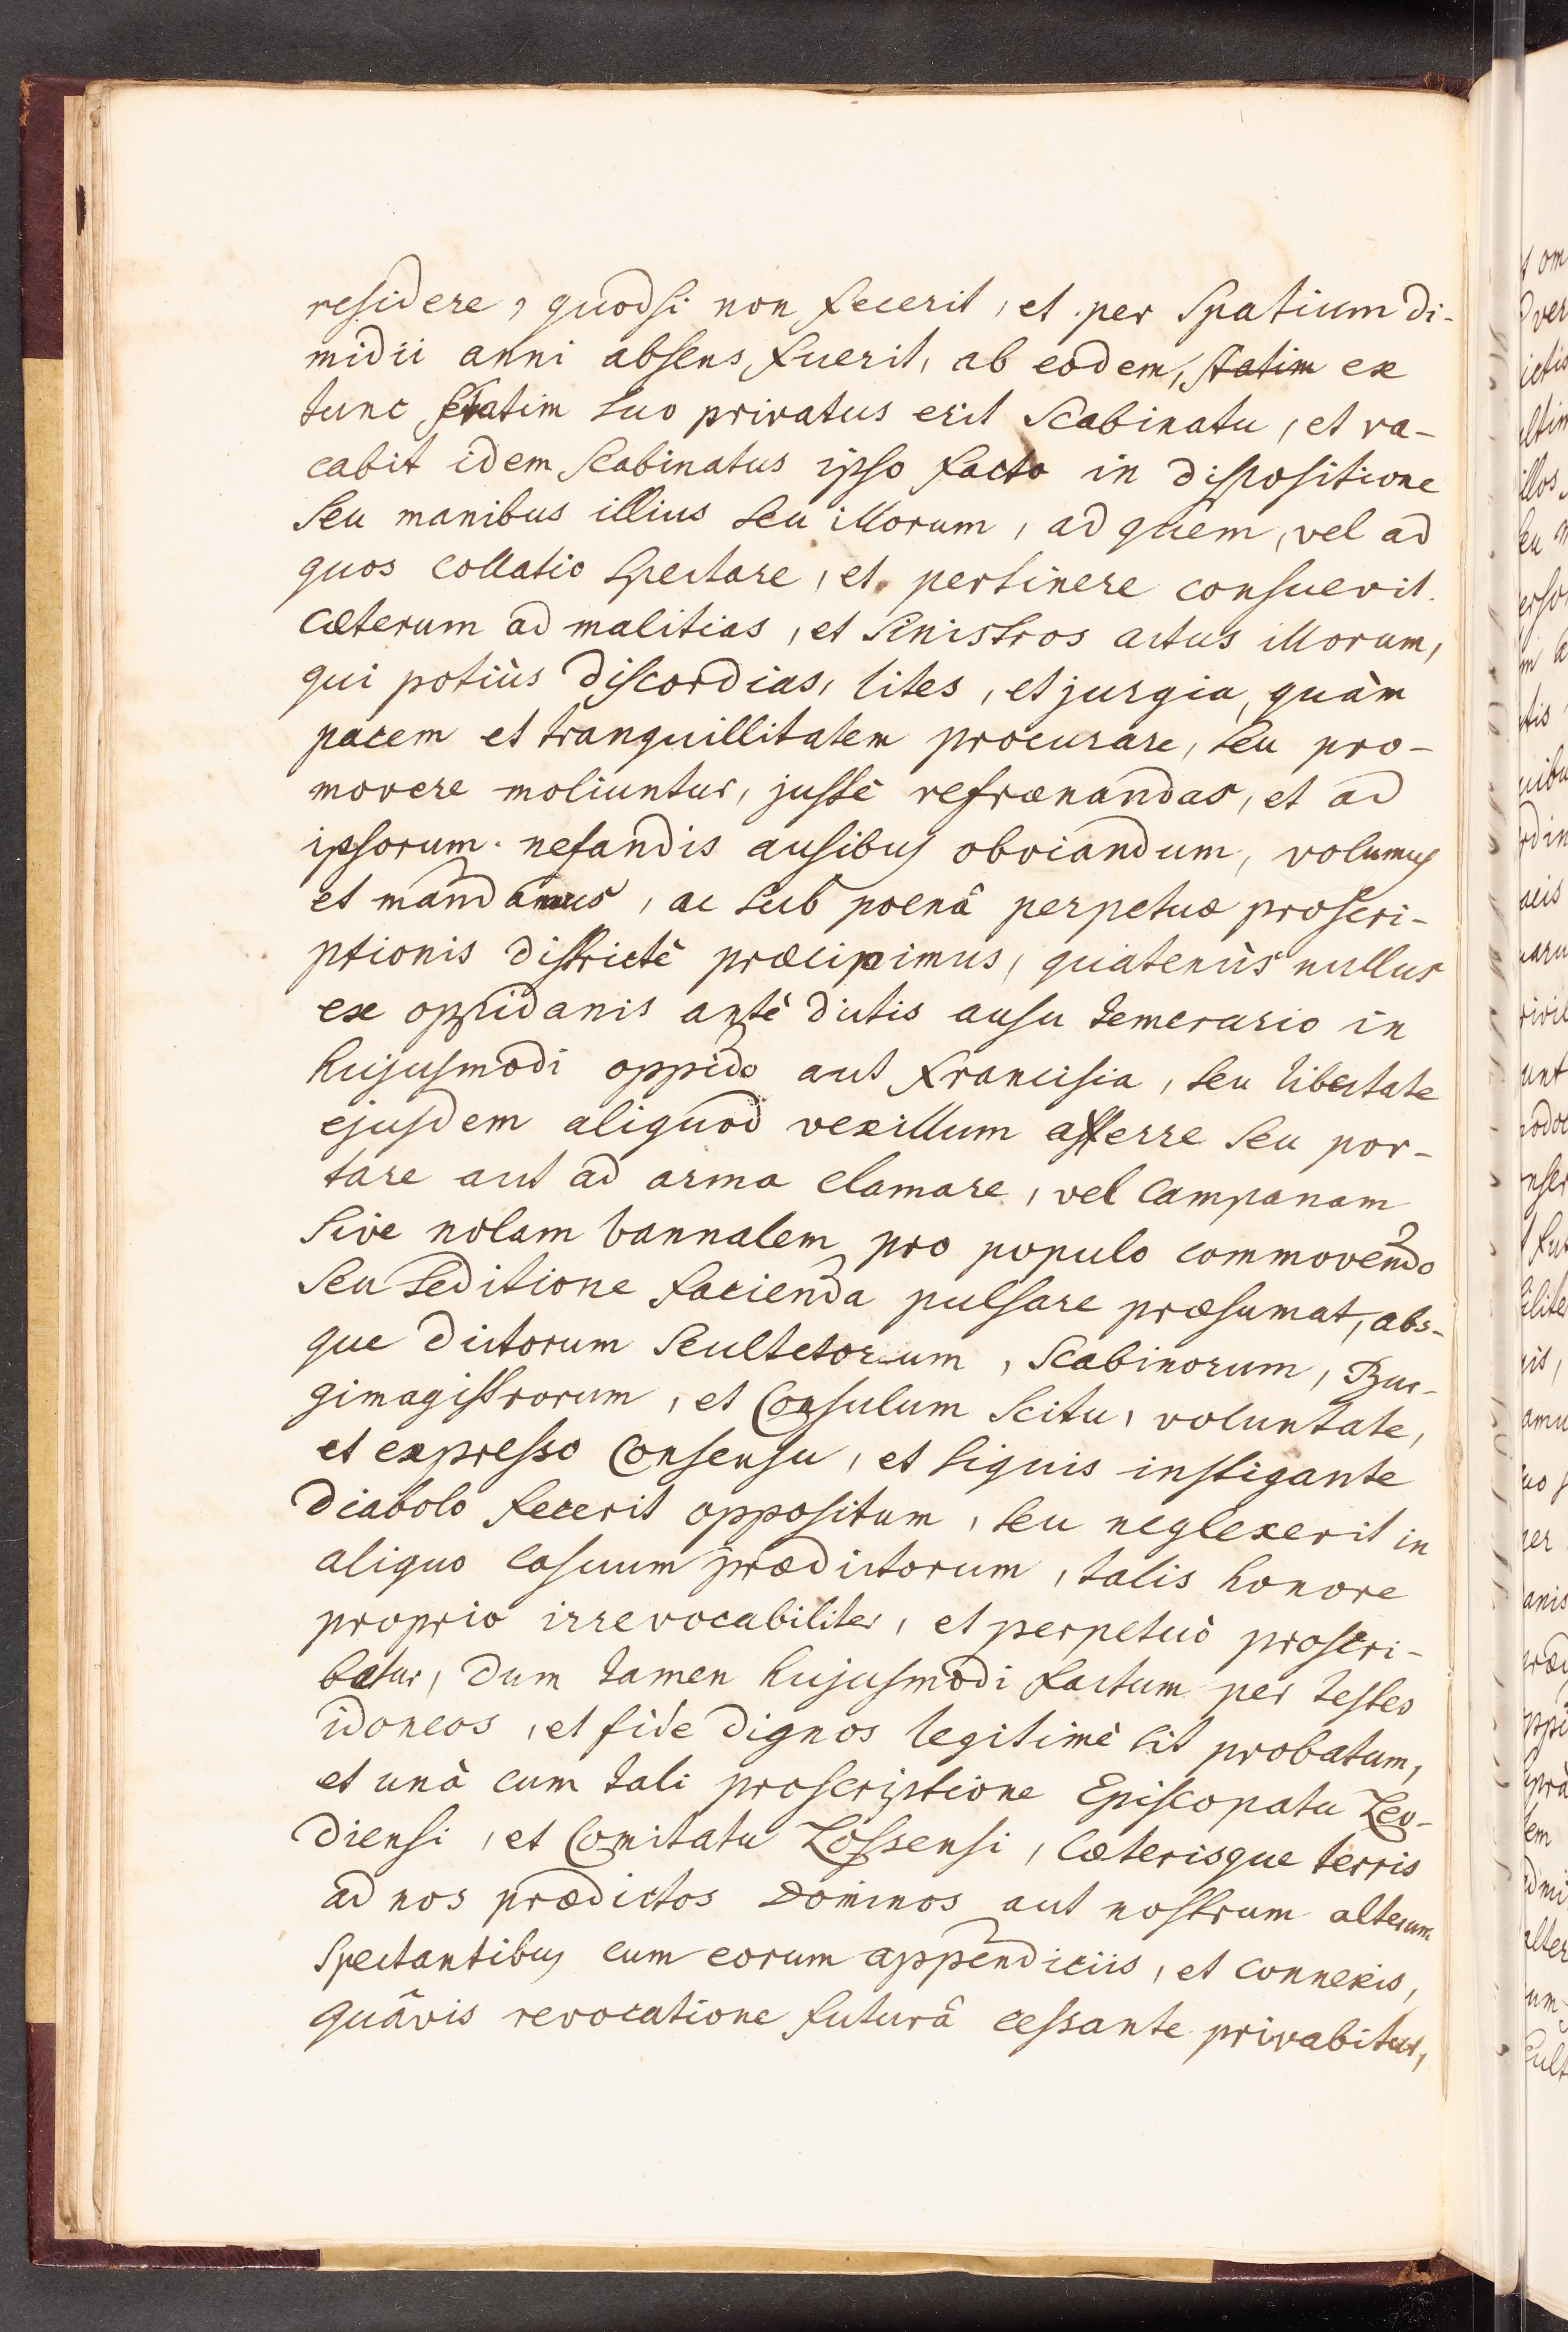 residere, quodsi non fecerit, et per spatium di-
midii anni absens fuerit, ab eodem, statim ex
tunc statim suo privatus erit Scabinatu, et va-
cabit idem Scabinatus ipso facto in dispositione
seu manibus illius seu illorum, ad quem, vel ad
quos collatio spectare, et pertinere consuevit.
Cæterum ad malitias, et sinistros actus illorum,
qui potiùs discordias, lites, et jurgia, quàm
pacem et tranquillitatem procurare, seu pro-
movere moliuntur, justè refrænandas, et ad
ipsorum nefandis ausibus obviandum, volumus
et mandamus, ac sub poenâ perpetuæ proscri-
ptionis districtè præcipimus, quatenùs nullus
ex oppidanis antè dictis ausu temerario in
hujusmodi oppido aut Francisia, seu libertate
ejusdem aliquod vexillum afferre seu por-
tare aut ad arma clamare, vel campanam
sive nolam bannalem pro populo commovendo
seu seditione facienda pulsare præsumat, abs-
que dictorum Scultetorum, Scabinorum, Bur-
gimagistrorum, et Consulum scitu, voluntate,
et expresso Consensu, et siquis instigante
diabolo fecerit oppositum, seu neglexerit in
aliquo casuum prædictorum, talis honore
proprio irrevocabiliter, et perpetuò proscri-
batur, dum tamen hujusmodi factum per testes
idoneos, et fide dignos legitimè sit probatum,
et unà cum tali proscriptione Episcopatu Leo-
diensi, et Comitatu Lossensi, Cæterisque terris
ad nos prædictos Dominos aut nostrum alterum
spectantibus cum eorum appendiciis, et connexis,
quâvis revocatione futurâ cessante privabitur,